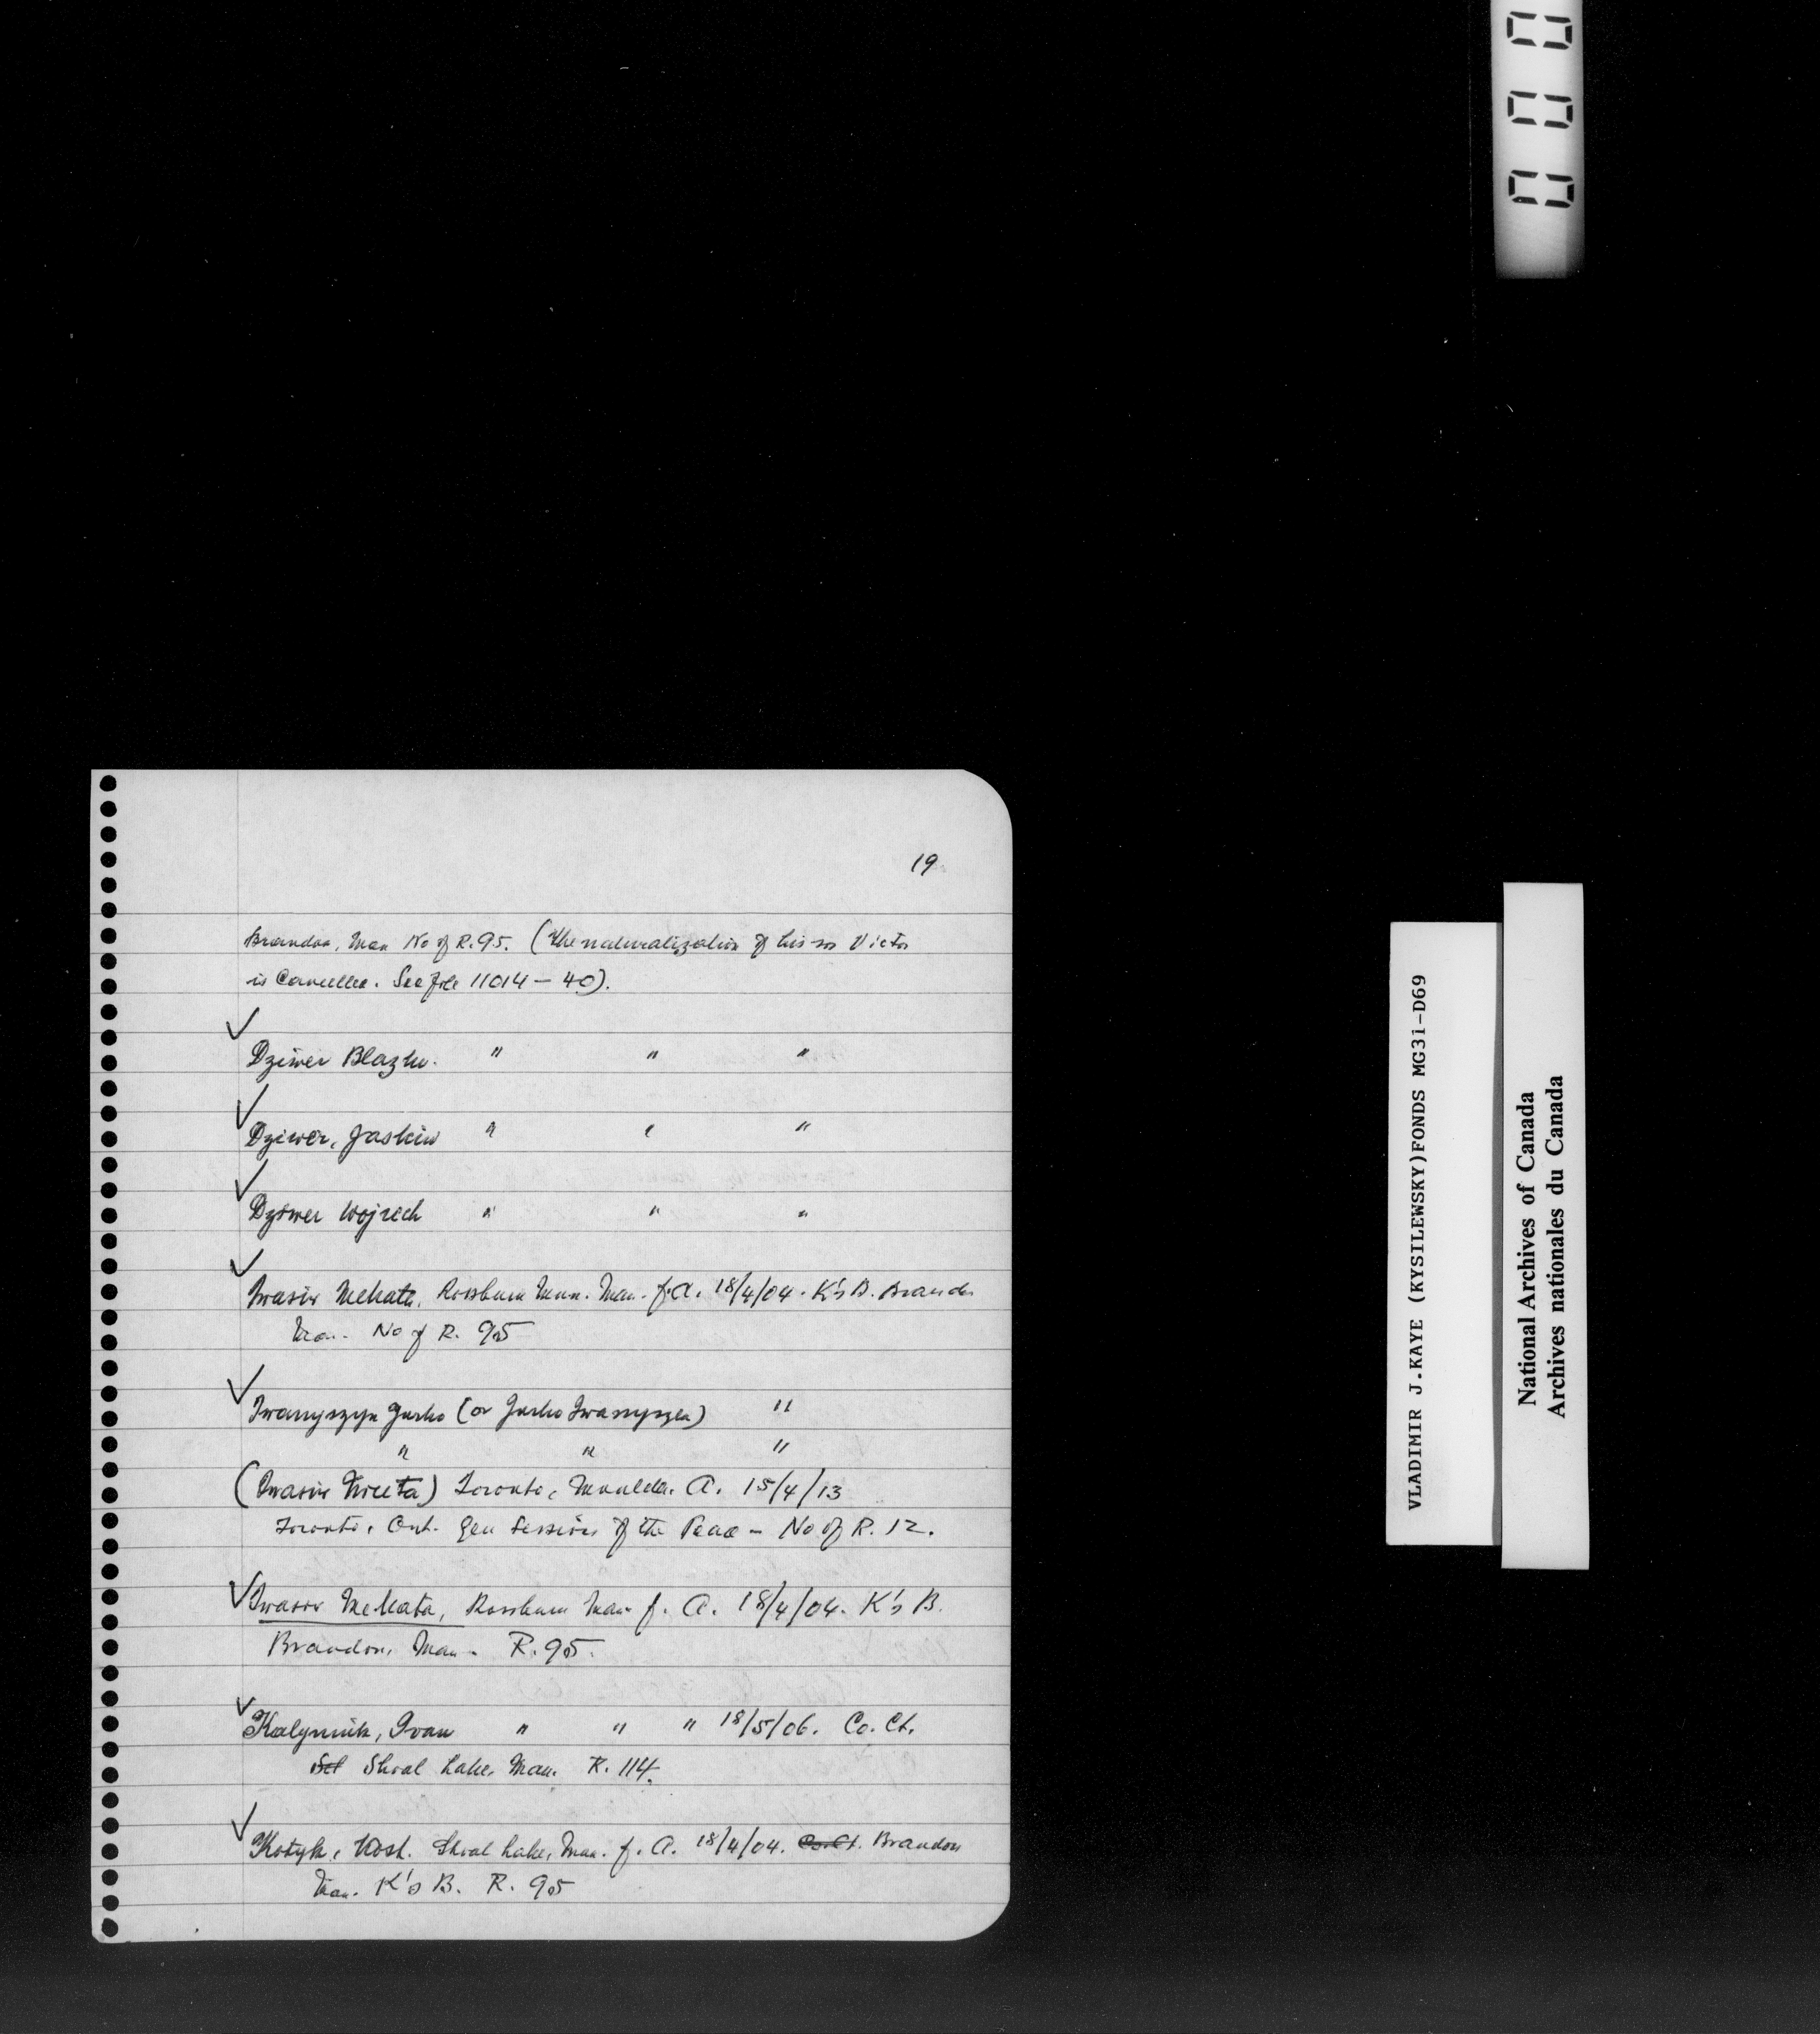 19
Brandon, Man No of R. 95. (The naturalization of his son Victor
is Cancelled. See file 11014 – 40).
✓
Dziwer Blazko. " " "
✓
Dziwer, Jaskiw " " "
✓
Dziwer Wojzech " " "
✓
Iwasiw Mekata, Rossburn Mun. Man. f. A. 18/4/04. K's B. Brandon
Man. No of R. 95
✓
Iwanyszyn Jurko (or Jurko Iwanyszen) "
" " "
(Iwasiw Nyketa) Toronto, A. 15/4/13
Toronto, Ont. Gen Sessions of the Peace – No of R. 12.
✓ Iwasiw Mekata, Rossburn Man f. A. 18/4/04. K's B.
Brandon, Man – R. 95.
✓
Kalyniuk, Ivan " " " 18/5/06. Co. Ct.
Shoal Lake, Man. R. 114.
✓
Kotyk, Wost. Shoal Lake, Man. f. A. 18/4/04. Co. Ct. Brandon
Man. K's B. R. 95
000
VLADIMIR J.KAYE (KYSILEWSKY)FONDS MG3i-D69
National Archives of Canada
Archives nationales du Canada